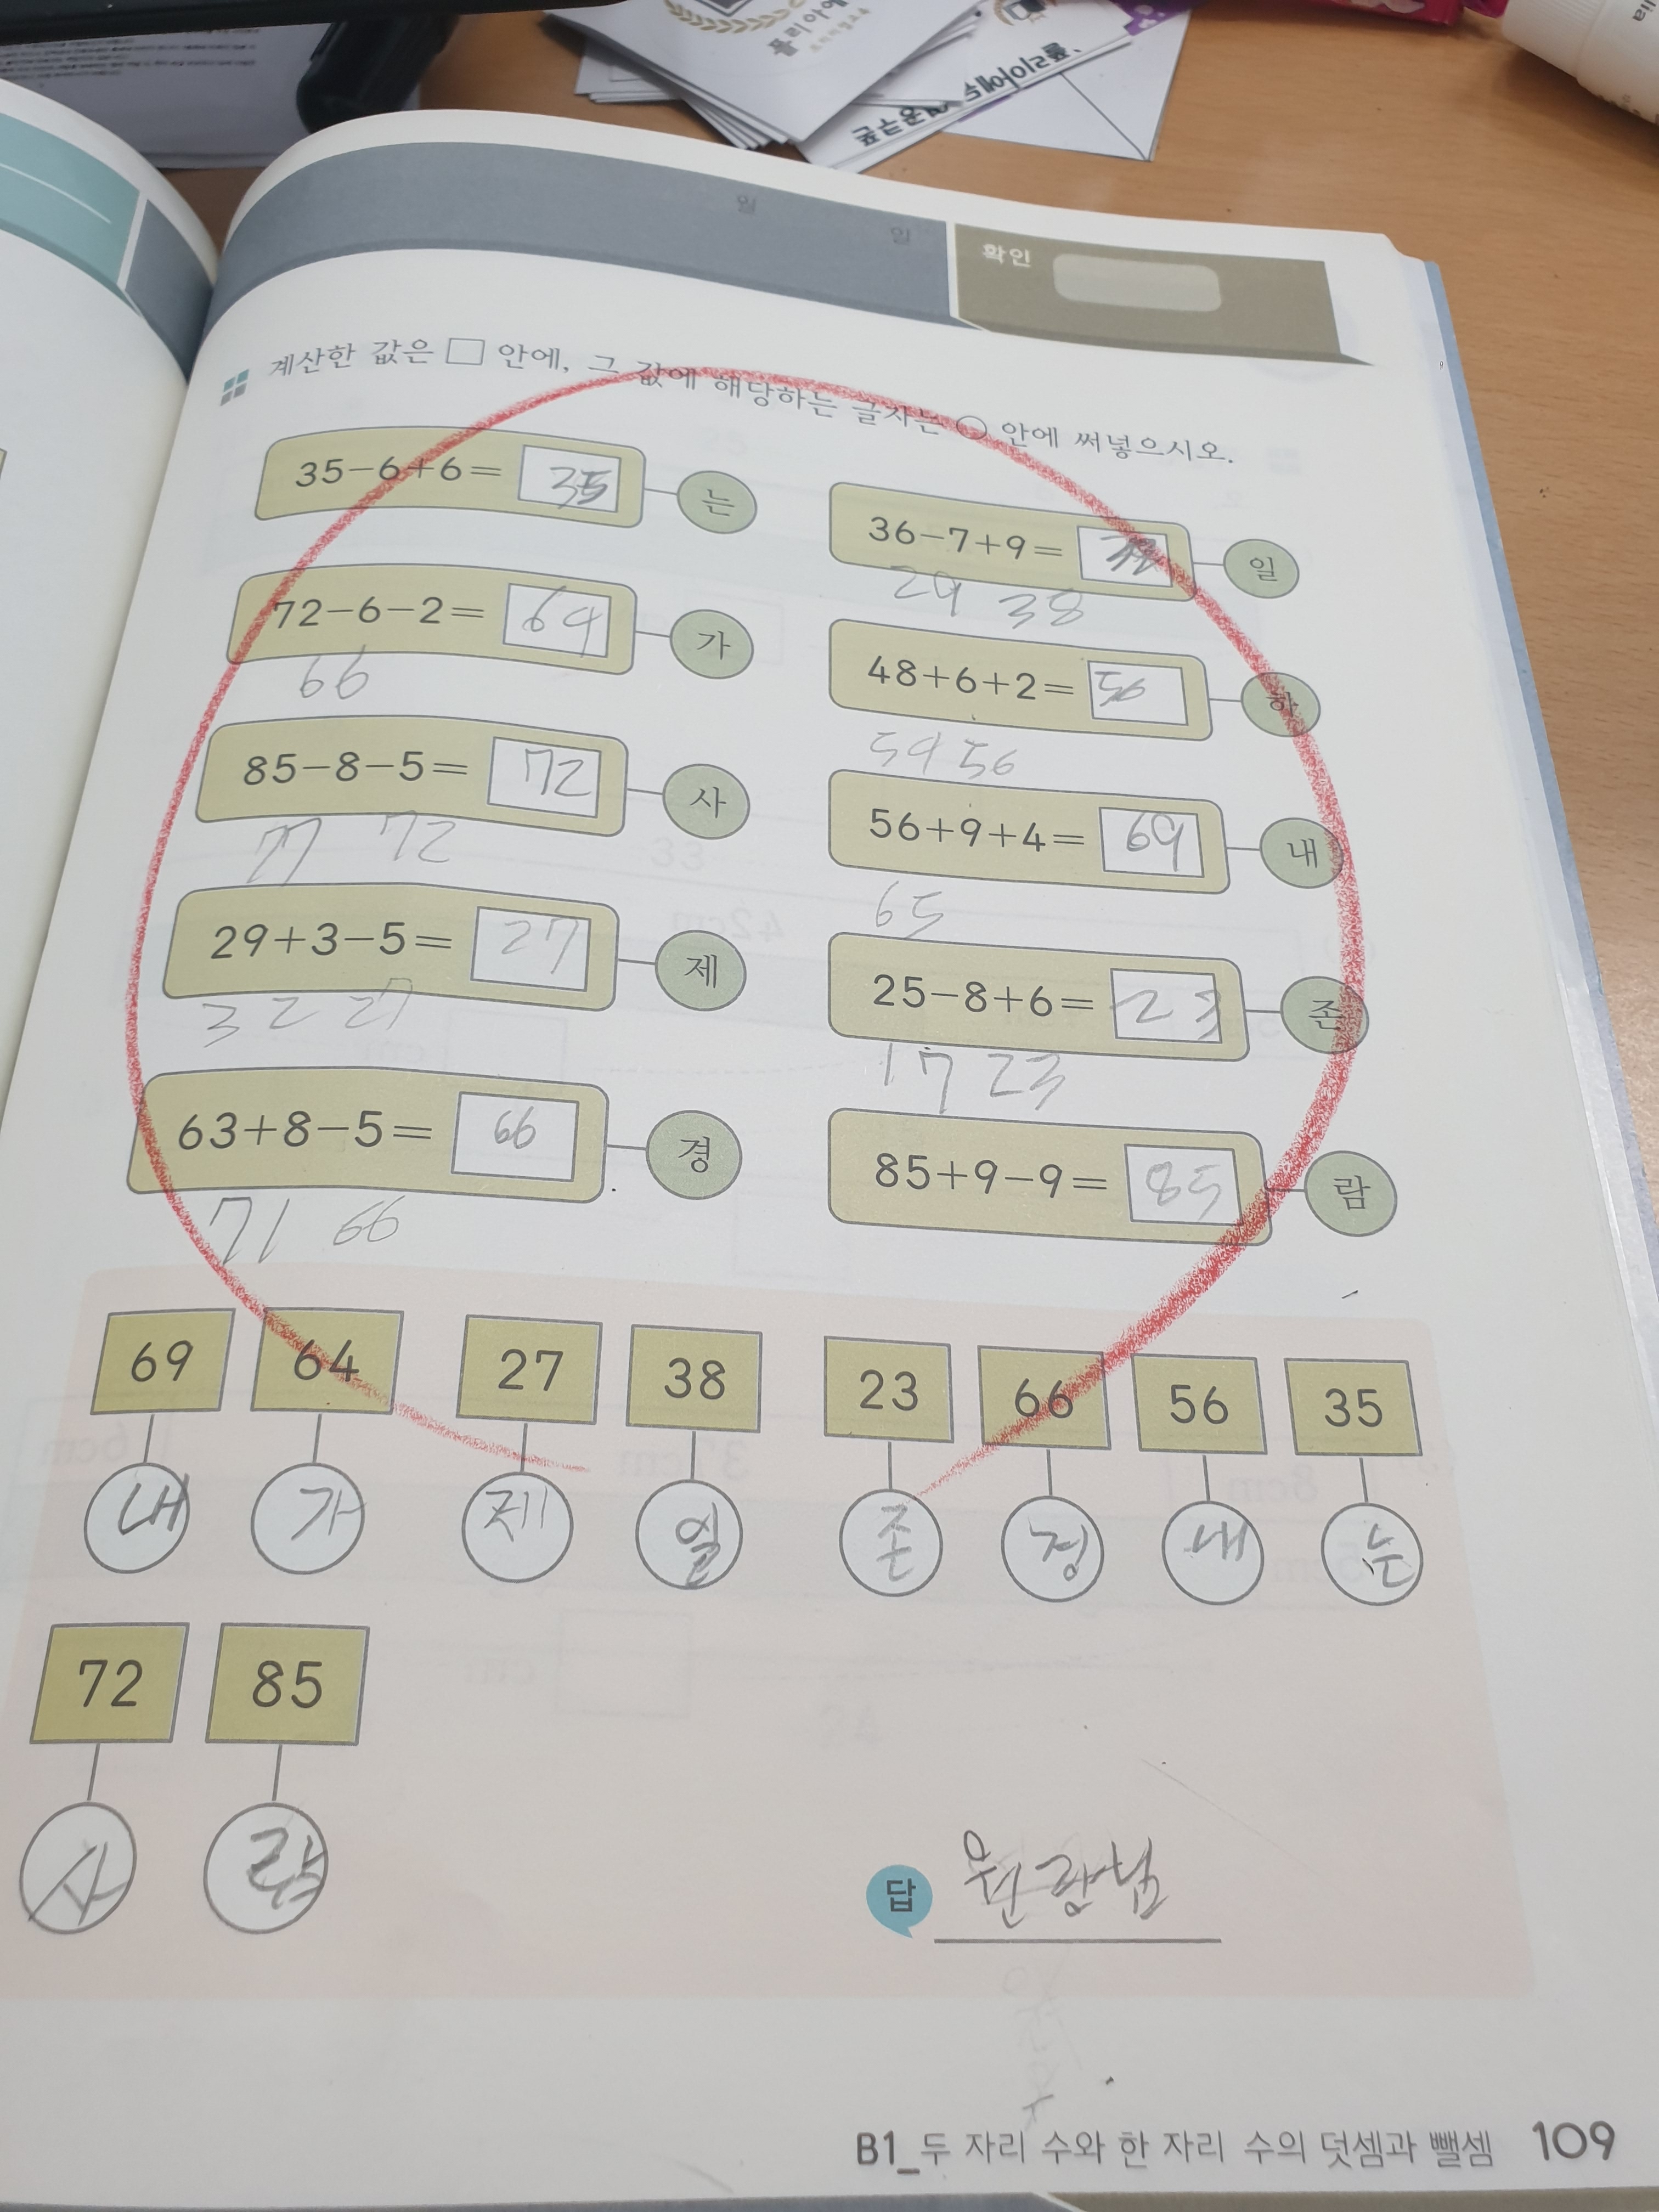 플리아에
월
일
확인
계산한 값은 □ 안에, 그 값에 해당하는 글자는 ○ 안에 써넣으시오.
35-6+6= 35 는
72-6-2= 64 가
66
85-8-5= 72 사
77 72
29+3-5= 27 제
32 27
63+8-5= 66 경
71 66
36-7+9= 일
29 38
48+6+2= 56 하
54 56
56+9+4= 69 내
65
25-8+6= 23 존
17 23
85+9-9= 85 람
69 64 27 38 23 66 56 35
내 가 제 일 존 경 내 는
72 85
사 람
답 원장님
B1_두 자리 수와 한 자리 수의 덧셈과 뺄셈 109